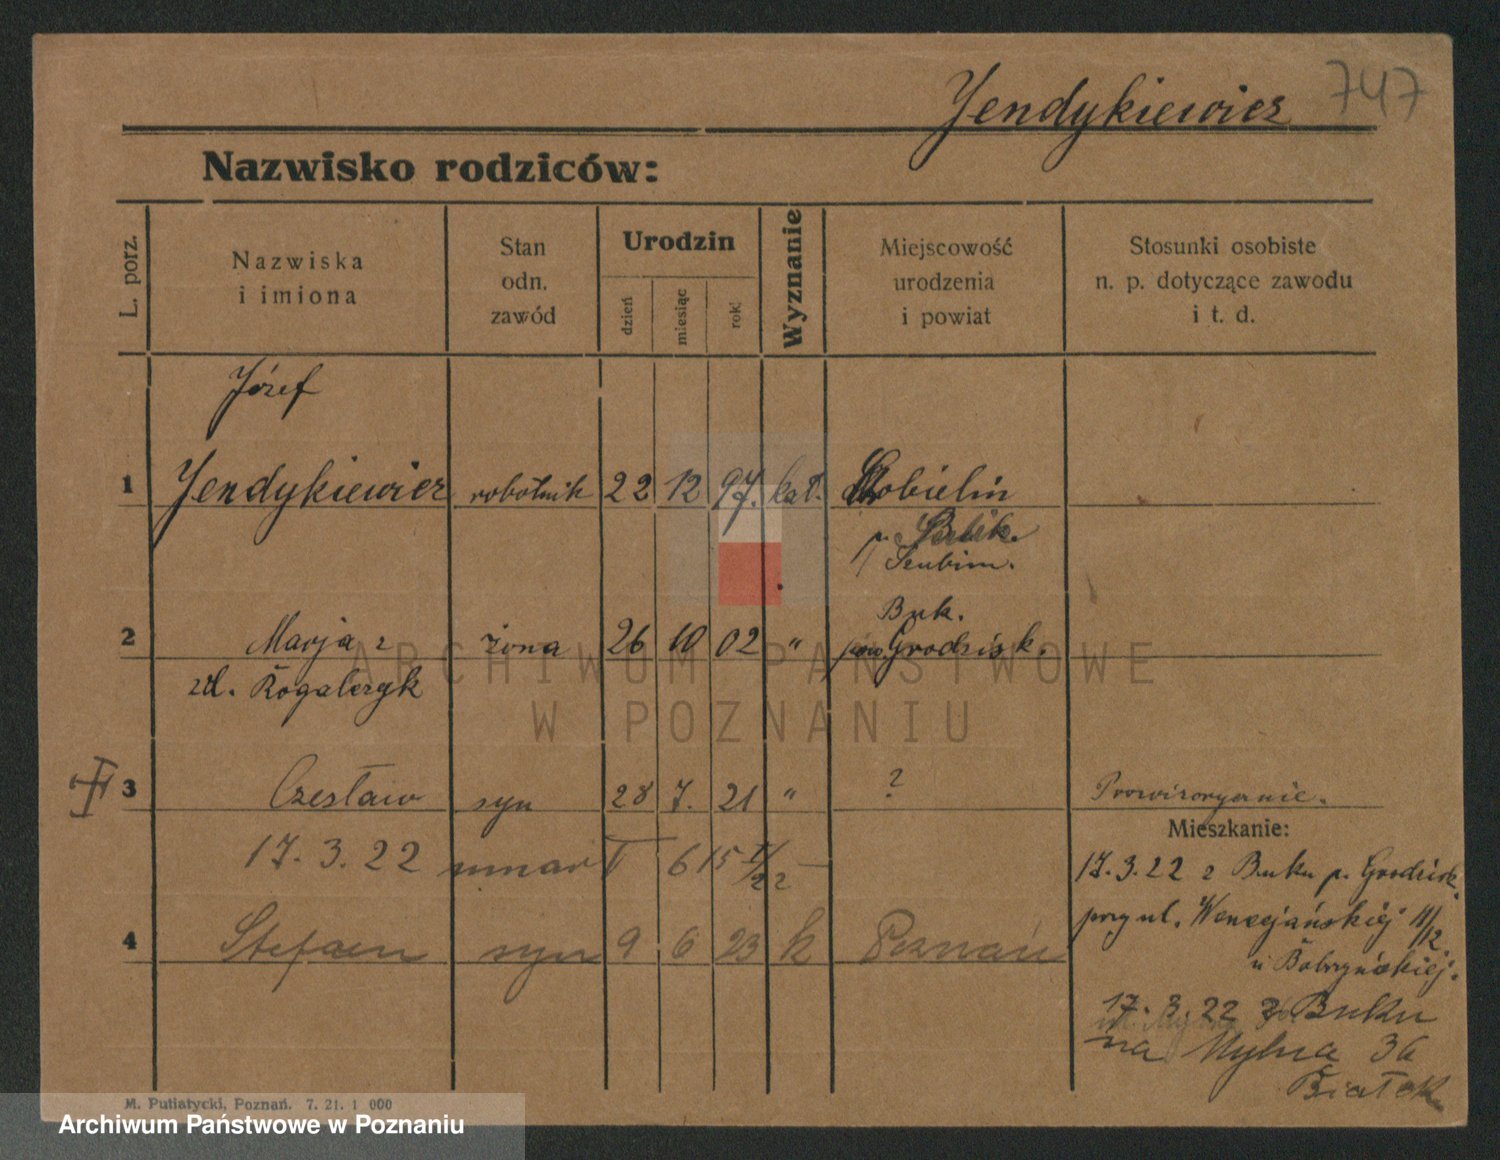 Jendykiewicz 747
Nazwisko rodziców:
L. porz.
Nazwiska
i imiona
Stan
odn.
zawód
Urodzin
dzień
miesiąc
rok
Wyznanie
Miejscowość
urodzenia
i powiat
Stosunki osobiste
n. p. dotyczące zawodu
i t. d.
Józef
1 Jendykiewicz robotnik 22 12 97. kat.
Szubin.
Buk.
2 Marja z żona 26 10 02 " pow. Grodzisk.
zd.
3 Czesław syn 28 7. 21 " ? Prowizorycznie.
Mieszkanie:
17. 3. 22 umarł 6 15
17. 3. 22 z Buku p. Grodzisk.
przy ul. Wenecjańskiej 11/12.
4 Stefan syn 9 6 23 k Poznań
u
17. 3. 22 z Buku
na Mylna 36
Białek
M. Putiatycki, Poznań. 7. 21. 1 000
ARCHIWUM PAŃSTWOWE
W POZNANIU
Archiwum Państwowe w Poznaniu